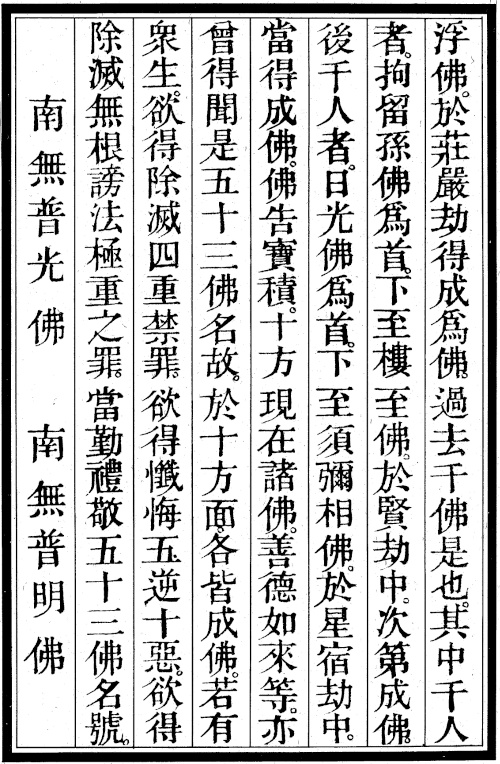 浮佛。於莊嚴劫得成爲佛。過去千佛是也。其中千人
者。拘留孫佛爲首。下至樓至佛。於賢劫中。次第成佛。
後千人者。日光佛爲首。下至須彌相佛。於星宿劫中。
當得成佛。佛告寶積。十方現在諸佛。善德如來等。亦
曾得聞是五十三佛名故。於十方面。各皆成佛。若有
衆生。欲得除滅四重禁罪。欲得懺悔五逆十惡。欲得
除滅無根謗法極重之罪。當勤禮敬五十三佛名號。
南無普光佛　南無普明佛